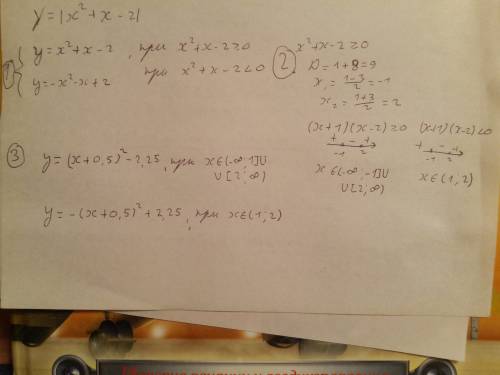 y = |x² + x - 2|
① { y = x² + x - 2, при x² + x - 2 ≥ 0
y = -x² - x + 2 при x² + x - 2 < 0
② x² + x - 2 ≥ 0
D = 1 + 8 = 9
x₁ = (1-3)/2 = -1
x₂ = (1+3)/2 = 2
(x+1)(x-2) ≥ 0 (x+1)(x-2) < 0
+ - + + - +
-1 2 -1 2
x ∈ (-∞; -1] ∪ x ∈ (1; 2)
∪ [2; ∞)
③ y = (x + 0,5)² - 2,25, при x ∈ (-∞; 1] ∪
∪ [2; ∞)
y = -(x + 0,5)² + 2,25, при x ∈ (1; 2)